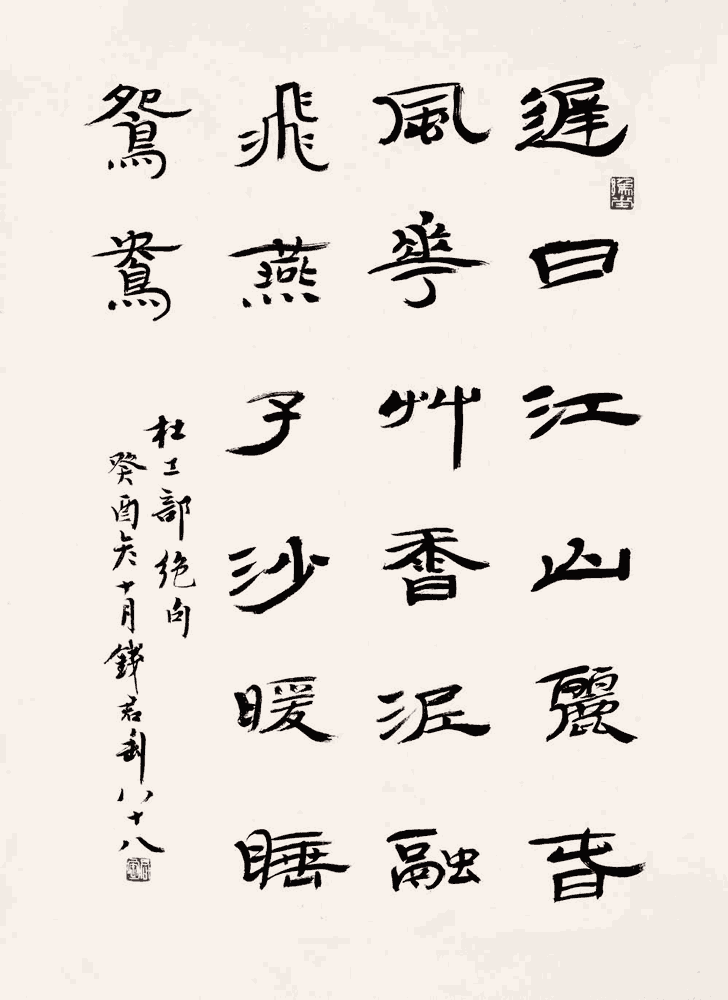 遲日江山麗春
風華艸香泥融
飛燕子沙暖睡
鴛鴦
杜工部絶句
癸酉冬十月錢君匋八十八